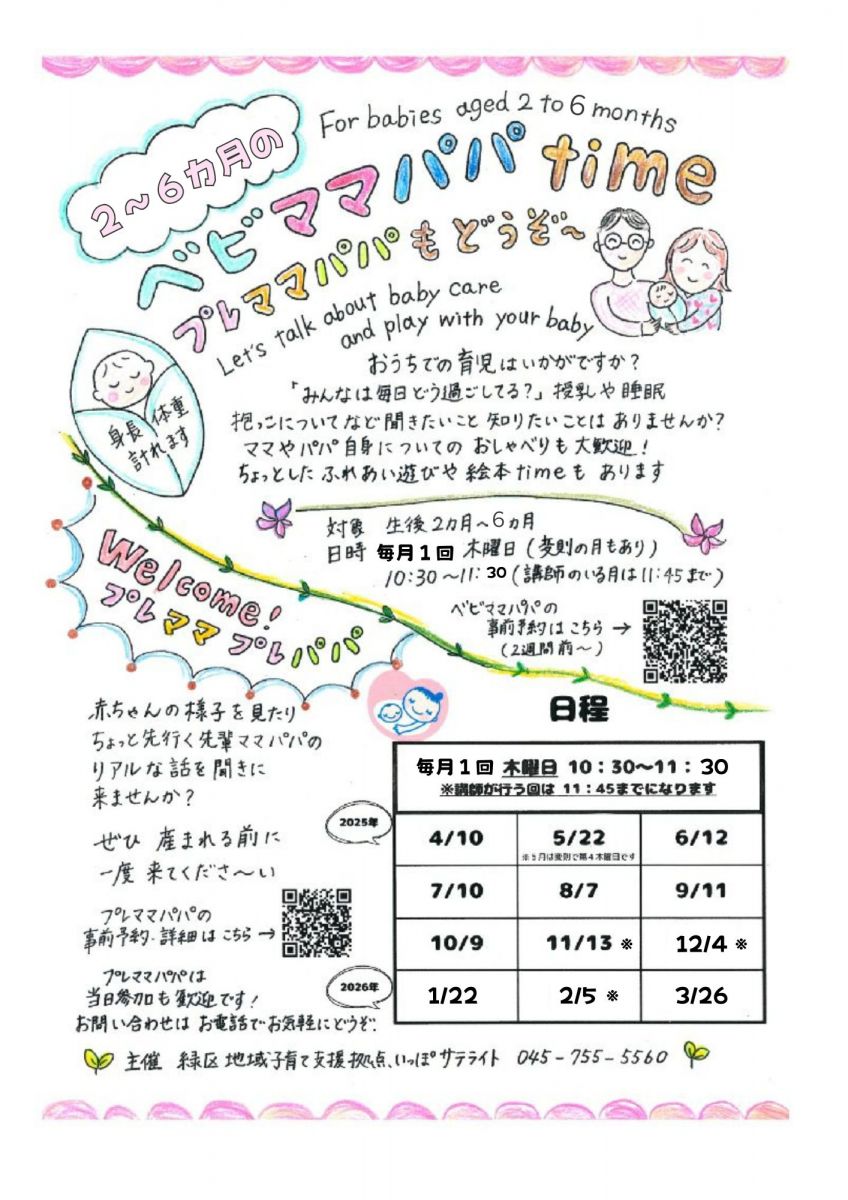 For babies aged 2 to 6 months
2～6カ月の
ベビママパパ time
プレママパパもどうぞ～
Let's talk about baby care
and play with your baby
おうちでの育児はいかがですか？
「みんなは毎日どう過ごしてる？」授乳や睡眠
抱っこについてなど聞きたいこと 知りたいことは ありませんか？
ママやパパ自身についての おしゃべりも大歓迎！
ちょっとした ふれあい遊びや 絵本timeも あります
身長 体重
計れます
対象 生後2カ月～6カ月
日時 毎月１回 木曜日（変則の月もあり）
10:30～11:30（講師のいる月は11:45まで）
ベビママパパの
事前予約はこちら→
（2週間前～）
Welcome!
プレママプレパパ
赤ちゃんの様子を見たり
ちょっと先行く先輩ママパパの
リアルな話を聞きに
来ませんか？
ぜひ 産まれる前に
一度 来てくださ～い
プレママパパの
事前予約・詳細はこちら→
プレママパパは
当日参加も歓迎です！
お問い合わせは お電話でお気軽にどうぞ。
日程
毎月１回 木曜日 10：30～11：30
※講師が行う回は 11：45までになります
2025年
4/10 5/22 6/12
※５月は変則で第４木曜日です
7/10 8/7 9/11
10/9 11/13 ※ 12/4 ※
2026年
1/22 2/5 ※ 3/26
主催 緑区地域子育て支援拠点、いっぽサテライト 045-755-5560